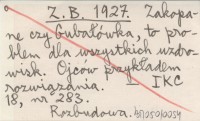 Z. B. 1927. Zakopa-
ne czy Gubałówka, to pro-
blem dla wszystkich uzdro-
wisk. Ojców przykładem
rozwiązania. IKC
18, nr 283.
Rozbudowa.